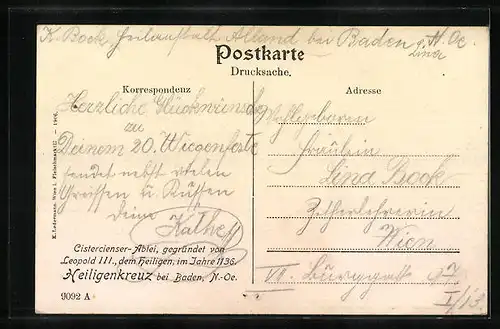 K. Bock, Heilanstalt Alland bei Baden N.-Oe.
Postkarte
Drucksache.
Korrespondenz
Herzliche Glückwünsche
zu
Deinem 20. Wiegenfeste
sendet nebst vielen
Greissen u. Küssen
deine Kathe
Cistercienser-Abtei, gegründet von
Leopold III., dem Heiligen, im Jahre 1136.
Heiligenkreuz bei Baden, N.-Oe.
9092 A
K. Ledermann, Wien I. Fleischmarkt 12 — 1906.
Adresse
Wohlgeboren
Fräulein
Lina Bock
Zitherlehrerin
Wien
VII. Burggasse